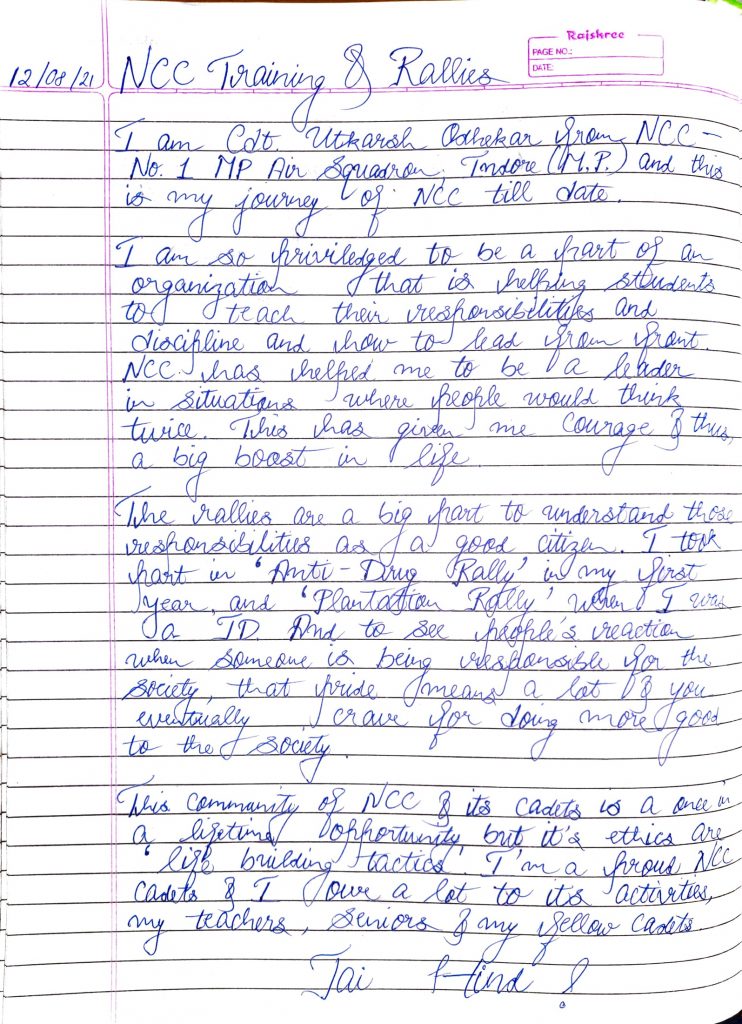 Rajshree
PAGE NO.:
DATE:
12/08/21 NCC Training & Rallies
I am Cdt. Utkarsh Odhekar from NCC -
No. 1 MP Air Squadron, Indore (M.P.) and this
is my journey of NCC till date.
I am so priviledged to be a part of an
organization that is helping students
to teach their responsibilities and
discipline and how to lead from front.
NCC has helped me to be a leader
in situations where people would think
twice. This has given me courage & thus,
a big boost in life.
The rallies are a big part to understand those
responsibilities as a good citizen. I took
part in 'Anti-Drug Rally' in my first
year, and 'Plantation Rally' when I was
a JD. And to see people's reaction
when someone is being responsible for the
society, that pride means a lot & you
eventually crave for doing more good
to the society.
This community of NCC & its cadets is a once in
a lifetime opportunity but it's ethics are
'life building tactics'. I'm a proud NCC
cadets & I owe a lot to its activities,
my teachers, seniors & my fellow cadets.
Jai Hind !